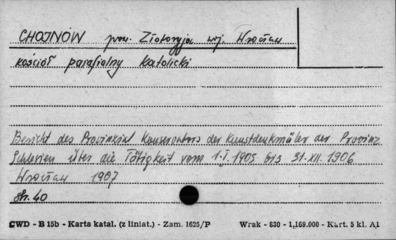 CHOJNÓW pow. Złotoryja wj. Wrocław
kościół parafialny katolicki
Bericht des Provinzial Konservators der Kunstdenkmäler der Provinz
Schlesien über die Tätigkeit vom 1.I.1905 bis 31.XII.1906
Wrocław 1907
Str. 40
CWD - B 15b - Karta katal. (z liniat.) - Zam. 1625/P Wrak - 630 - 1,169.000 - Kart. 5 kl. A1